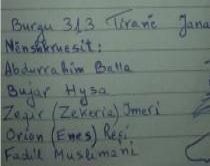 Burgu 313 Tiranë Jana
Nënshkruesit:
Abdurrahim Balla
Bujar Hysa
Zeqir (Zekeria) Imeri
Orion (Enes) Reçi
Fadil Muslimani